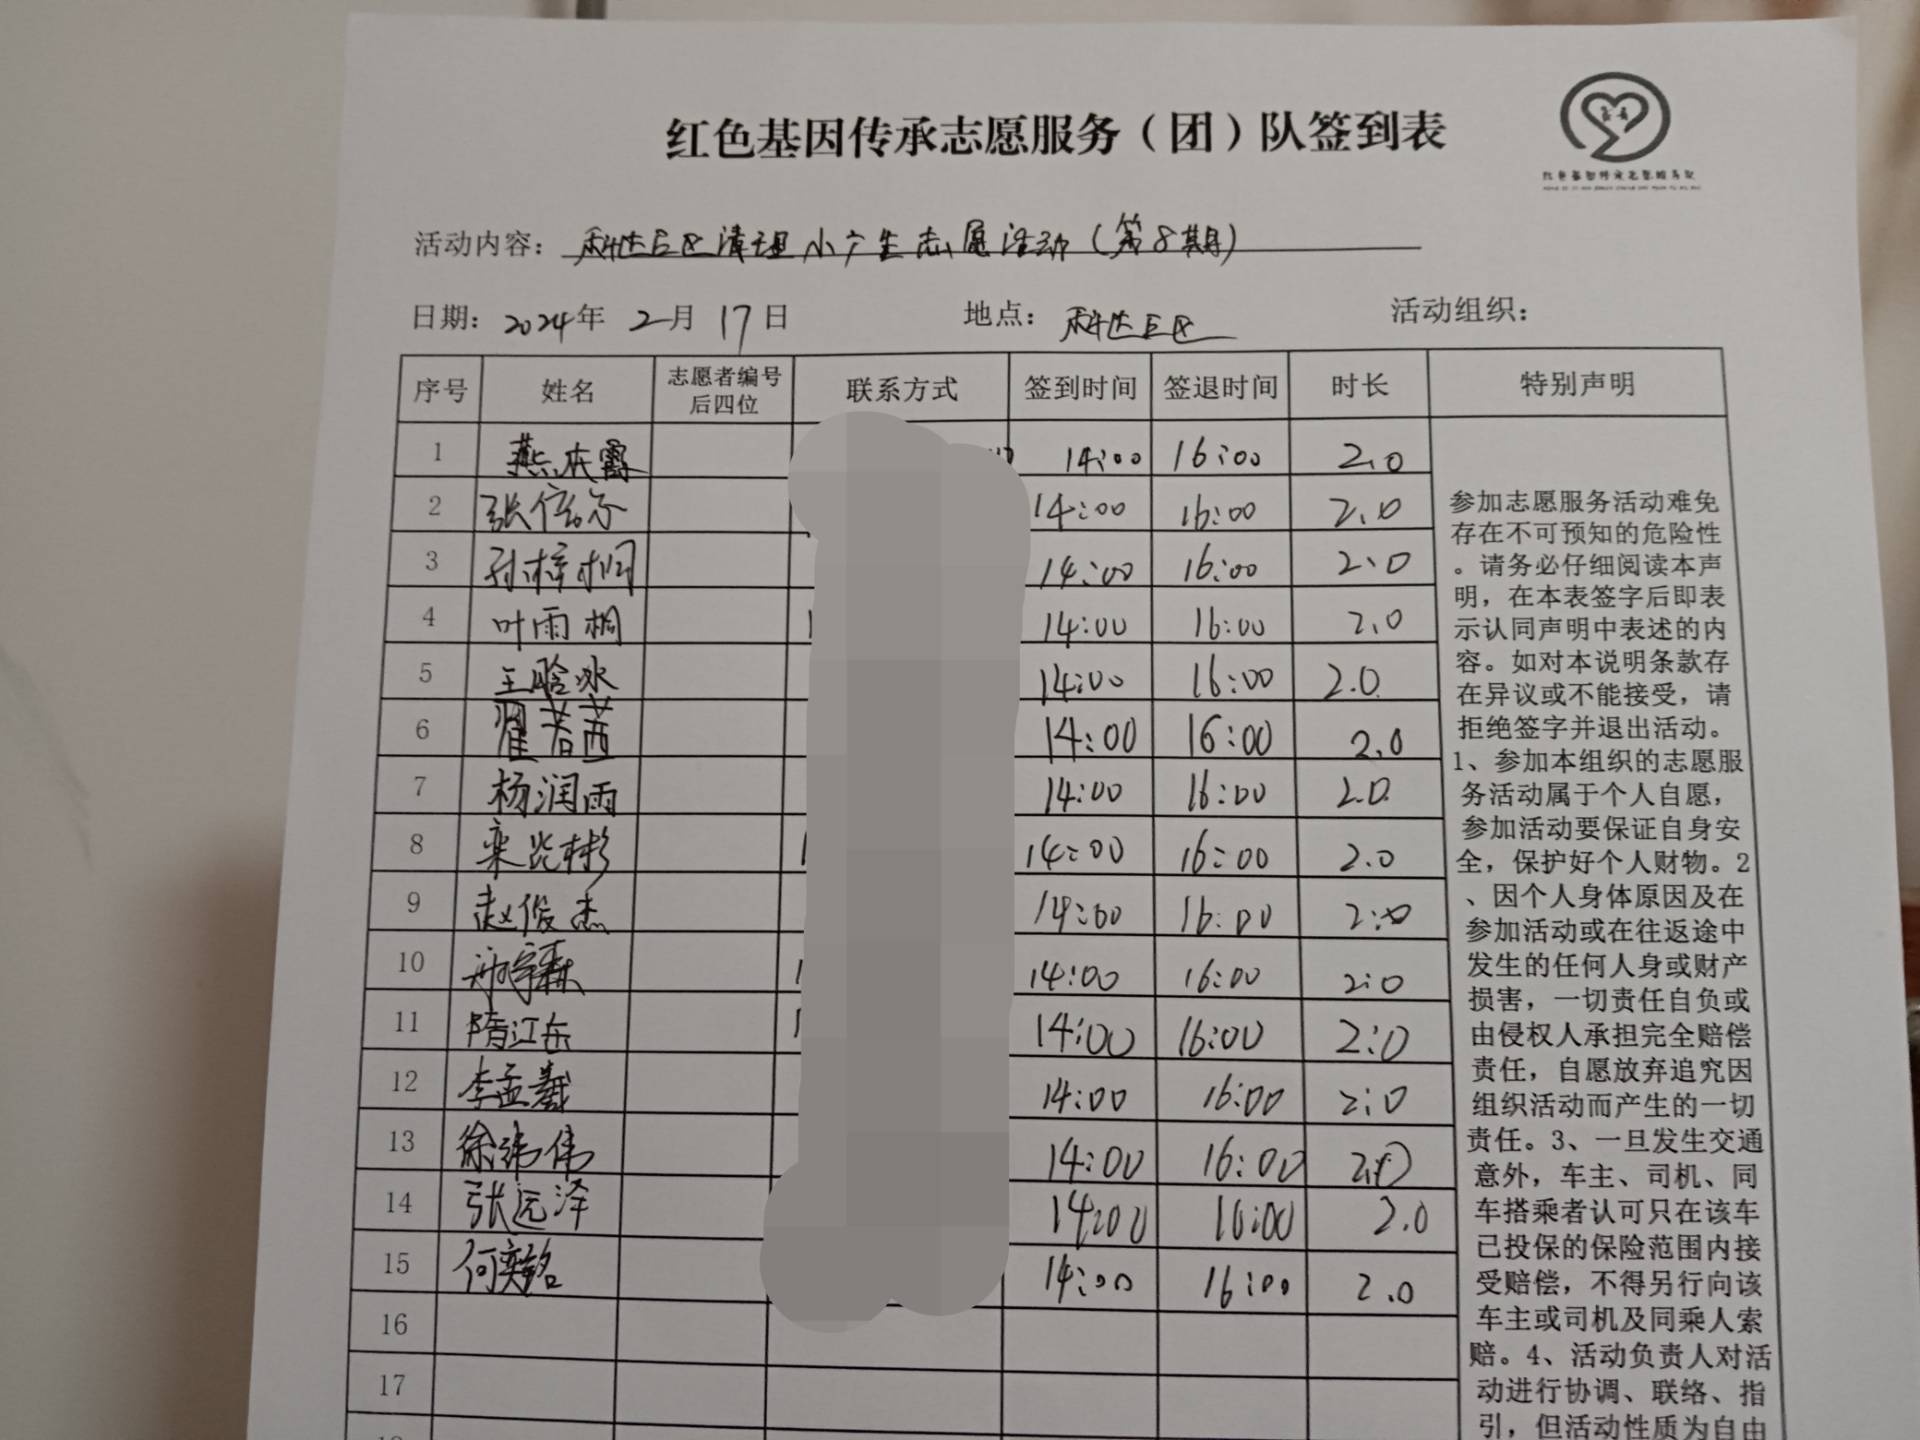 红色基因传承志愿服务（团）队签到表
红色基因传承志愿服务队
活动内容： 科达E区清理小广告志愿活动（第8期）
日期： 2024年 2月 17日 地点： 科达E区 活动组织：
序号 姓名 志愿者编号后四位 联系方式 签到时间 签退时间 时长 特别声明
1 燕本霞 14:00 16:00 2.0
2 张信尔 14:00 16:00 2.0
3 孙梓桐 14:00 16:00 2.0
4 叶雨桐 14:00 16:00 2.0
5 王晗冰 14:00 16:00 2.0
6 翟若茜 14:00 16:00 2.0
7 杨润雨 14:00 16:00 2.0
8 栾兆彬 14:00 16:00 2.0
9 赵俊杰 14:00 16:00 2:0
10 14:00 16:00 2:0
11 隋江东 14:00 16:00 2:0
12 李孟羲 14:00 16:00 2:0
13 徐纬伟 14:00 16:00 2.0
14 张远泽 14:00 16:00 2.0
15 何奕铭 14:00 16:00 2.0
16
17
参加志愿服务活动难免
存在不可预知的危险性
。请务必仔细阅读本声
明，在本表签字后即表
示认同声明中表述的内
容。如对本说明条款存
在异议或不能接受，请
拒绝签字并退出活动。
1、参加本组织的志愿服
务活动属于个人自愿，
参加活动要保证自身安
全，保护好个人财物。2
、因个人身体原因及在
参加活动或在往返途中
发生的任何人身或财产
损害，一切责任自负或
由侵权人承担完全赔偿
责任，自愿放弃追究因
组织活动而产生的一切
责任。3、一旦发生交通
意外，车主、司机、同
车搭乘者认可只在该车
已投保的保险范围内接
受赔偿，不得另行向该
车主或司机及同乘人索
赔。4、活动负责人对活
动进行协调、联络、指
引，但活动性质为自由